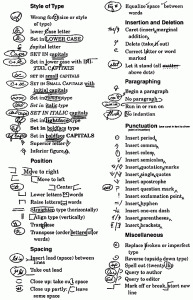 Style of Type
wf Wrong font (size or style of type)
lc Lower case letter
lc Set in LOWER CASE
capital letter
SET IN capitals
Set in lower case with INITIAL CAPITALS
SET IN small capitals
SET IN SMALL CAPITALS with initial capitals
Set in italic type
SET IN ITALIC CAPITALS
Set in boldface type
Set in boldface CAPITALS
Superior letter
Inferior figure
Position
Move to right
Move to left
Center
Lower letters words
Raise letters words
Straighten type (horizontally)
Align type (vertically)
Transpose
Transpose (order letters or words)
Spacing
Insert lead (space) between lines
Take out lead
Close up; take out space
Close up partly; leave some space
Equalize space between words
Insertion and Deletion
Caret (insert marginal addition)
Delete (take out)
Correct letter or word marked
Let it stand (all matter above dots)
Paragraphing
Begin a paragraph
No paragraph
Run in or run on
indention
Punctuation
Insert period
Insert comma
Insert colon
Insert semicolon
Insert quotation marks
Insert apostrophe
Insert question mark
Insert exclamation point
Insert hyphen
Insert parentheses
Insert brackets
Miscellaneous
Replace broken or imperfect type
Reverse (upside down type)
Spell out
Query to author
Query to editor
Mark off or break; start new line